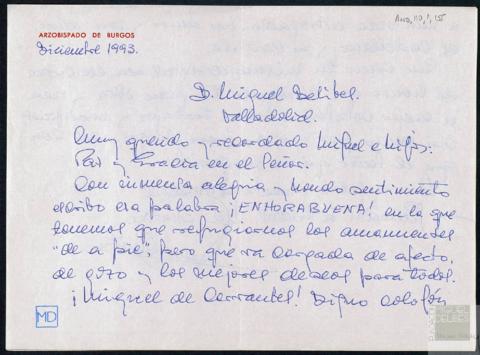 AMD, 110, 1, 151
ARZOBISPADO DE BURGOS
Diciembre 1993.
D. Miguel Delibes.
Valladolid.
Muy querido y recordado Miguel e hijos:
Paz y Gracia en el Señor.
Con inmensa alegria y hondo sentimiento
escribo esa palabra ¡ENHORABUENA! en la que
tenemos que refugiarnos los amanuenses
"de a pie", pero que va cargada de afecto,
de gozo y los mejores deseos para todos.
¡Miguel de Cervantes! Digno colofón
MD